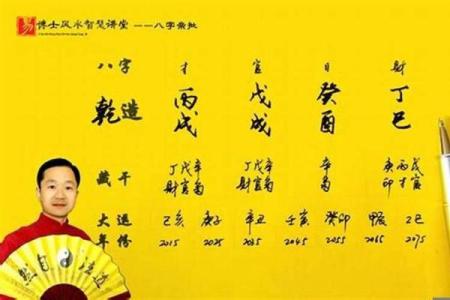 易 博士风水智慧讲堂 ——八字案批
八字 才 官 日 财
乾造 丙 戊 癸 丁
戌 戌 酉 巳
藏干 丁戊辛 丁戊辛 辛 庚丙戊
财官枭 财官枭 枭 印才官
大运 己亥 庚子 辛丑 壬寅 癸卯 甲辰 乙巳
年份 2015 2025 2035 2045 2055 2065 2075